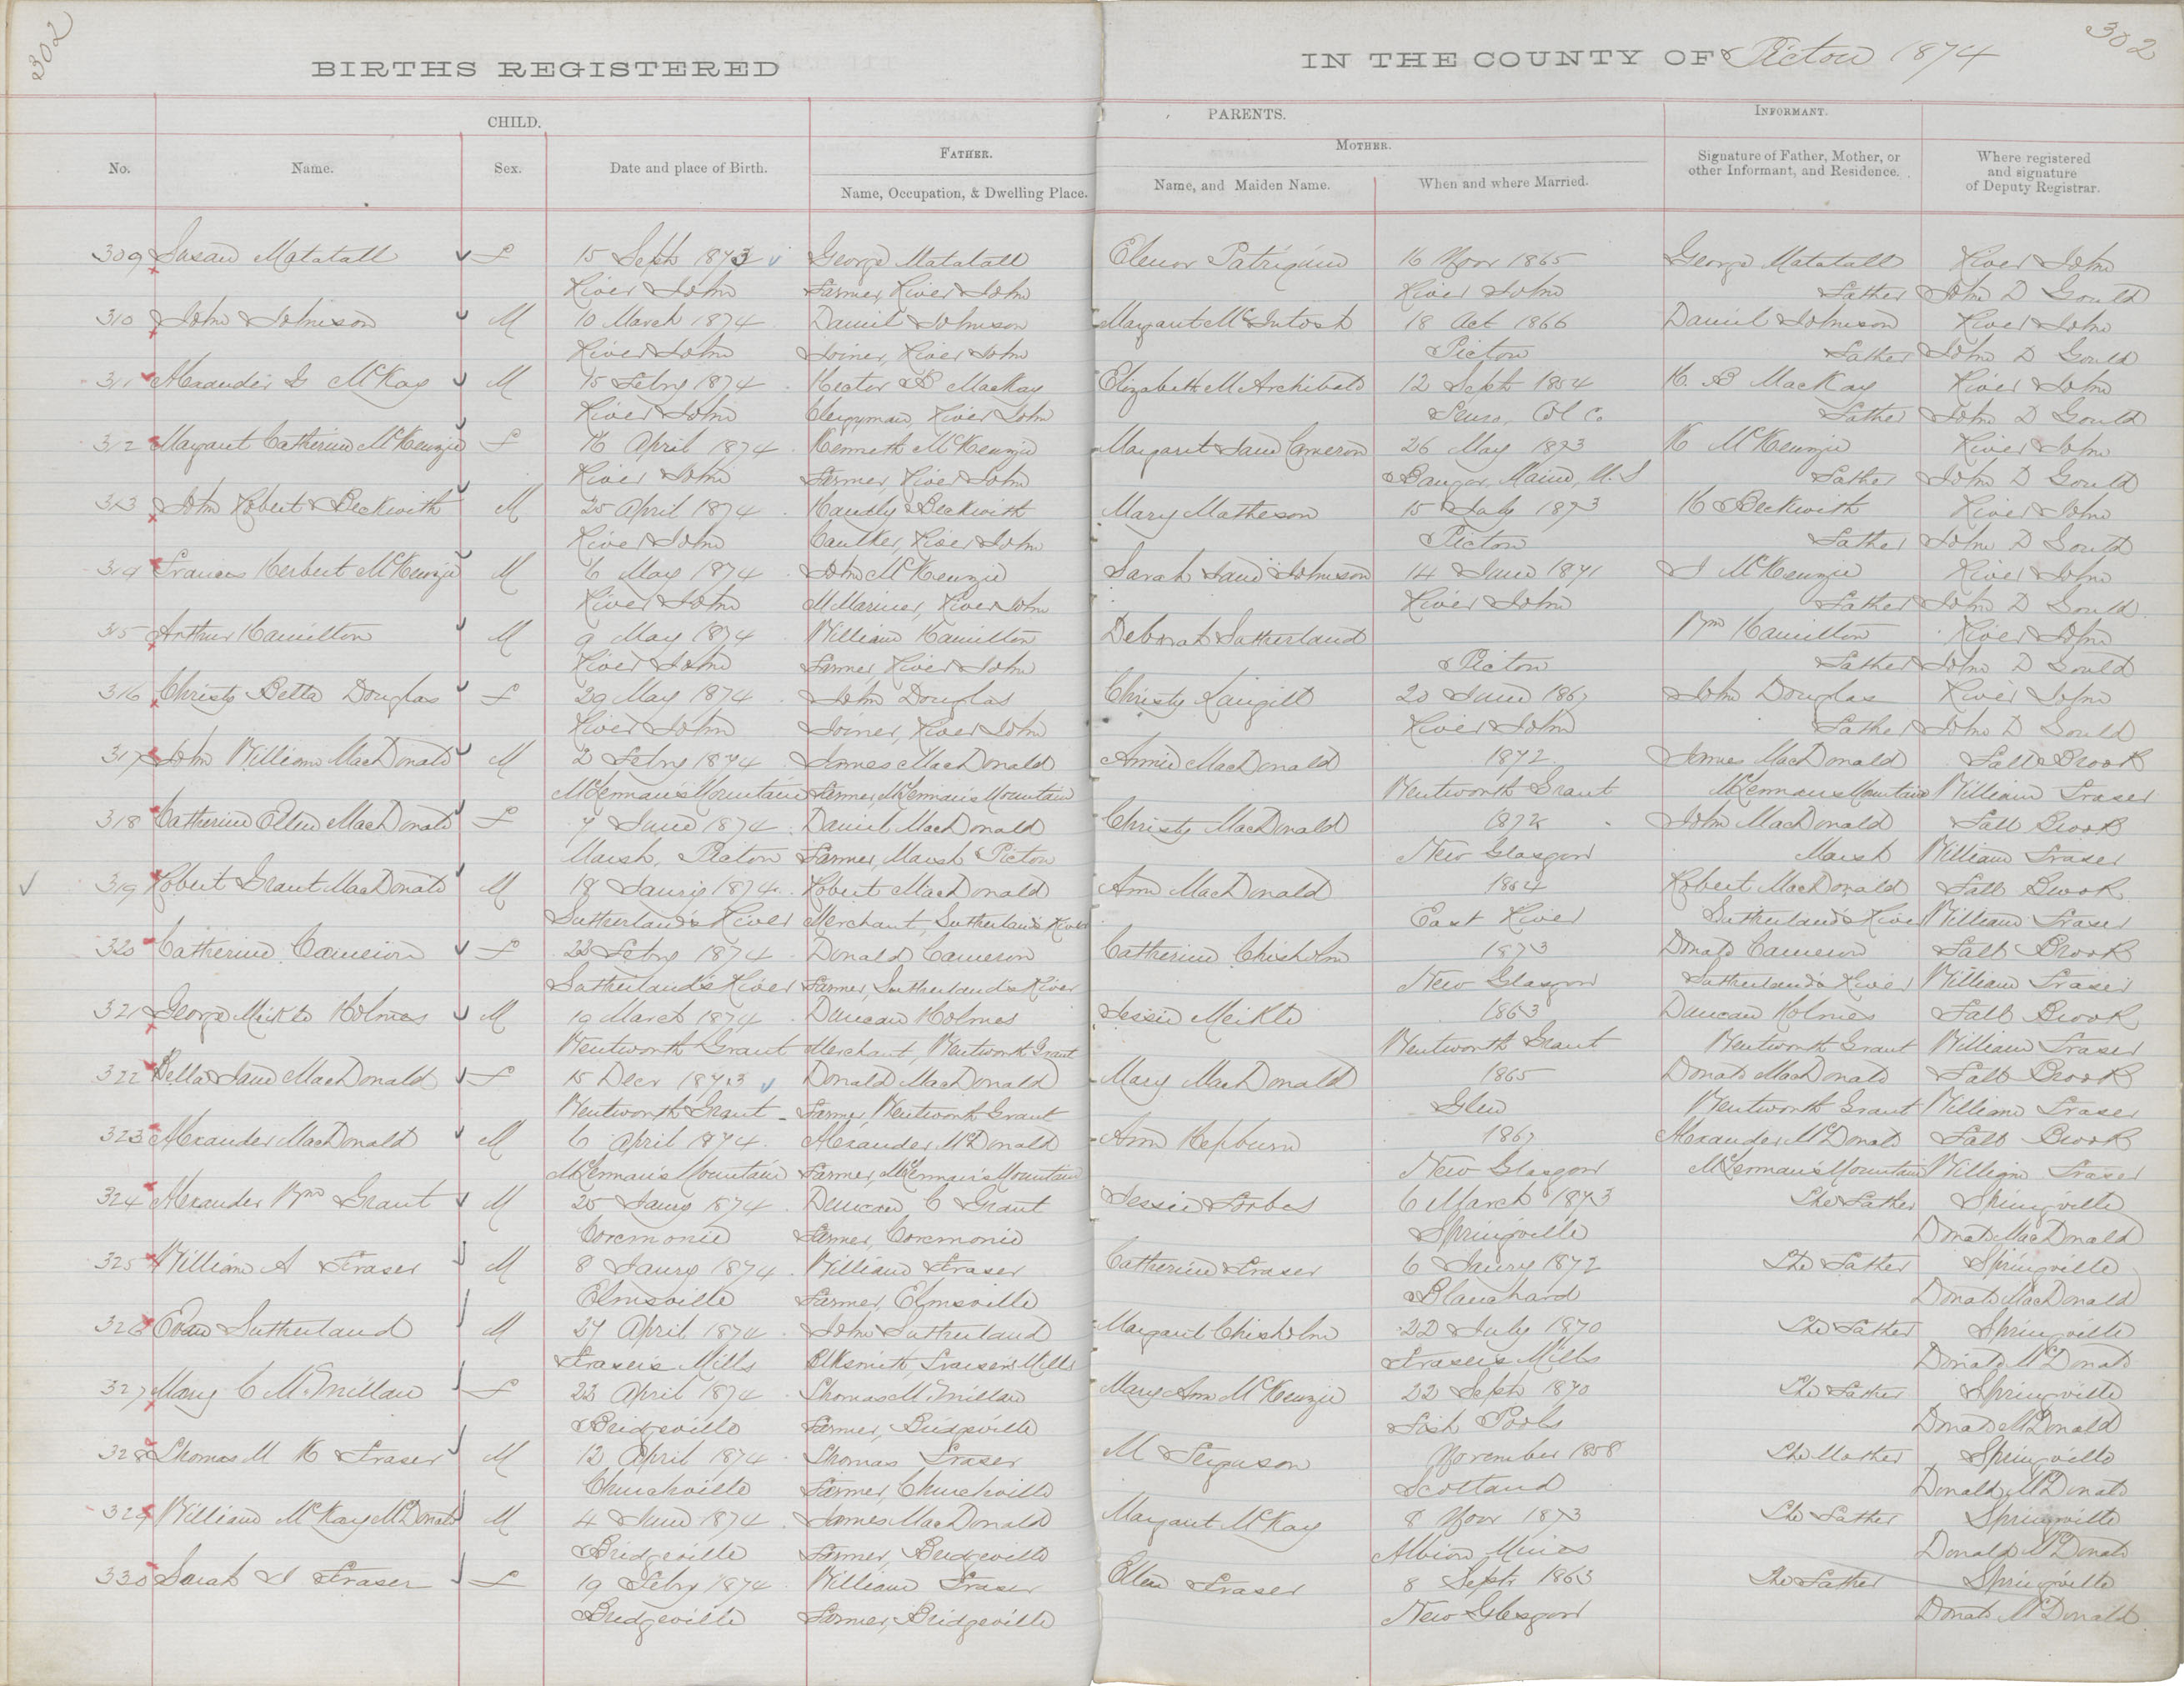 302
302
BIRTHS REGISTERED IN THE COUNTY OF Pictou 1874
CHILD. PARENTS. INFORMANT.
No. Name. Sex. Date and place of Birth. FATHER. Name, Occupation, & Dwelling Place. MOTHER. Name, and Maiden Name. When and where Married. Signature of Father, Mother, or other Informant, and Residence. Where registered and signature of Deputy Registrar.
309 Susan Matatall F 15 Sept 1873 George Matatall Elenor Patriquin 16 Novr 1865 George Matatall River John
River John Farmer, River John River John Father John D Gould
310 John Johnson M 10 March 1874 Daniel Johnson Margaret McIntosh 18 Oct 1866 Daniel Johnson River John
River John Joiner, River John Pictou Father John D Gould
311 Alexander G McKay M 15 Febry 1874 Hector B MacKay Elizabeth M Archibald 12 Sept 1854 H. B MacKay River John
River John Clergyman, River John Truro, Col Co. Father John D Gould
312 Margaret Catherine McKenzie F 16 April 1874 Kenneth McKenzie Margaret Jane Cameron 26 May 1873 K McKenzie River John
River John Farmer, River John Bangor, Maine, U.S Father John D Gould
313 John Robert Beckwith M 25 April 1874 Handly Beckwith Mary Matheson 15 July 1873 H Beckwith River John
River John Caulker, River John Pictou Father John D Gould
314 Frances Herbert McKenzie M 6 May 1874 John McKenzie Sarah Jane Johnson 14 June 1871 J McKenzie River John
River John M Mariner, River John River John Father John D Gould
315 Arthur Hamilton M 9 May 1874 William Hamilton Deborah Sutherland Wm Hamilton River John
River John Farmer, River John Pictou Father John D Gould
316 Christy Betta Douglas F 29 May 1874 John Douglas Christy Langill 20 June 1867 John Douglas River John
River John Joiner, River John River John Father John D Gould
317 John William MacDonald M 2 Febry 1874 James MacDonald Annie MacDonald 1872 James MacDonald Fall Brook
McLennan's Mountain Farmer, McLennan's Mountain Wentworth Grant McLennan's Mountain William Fraser
318 Catherine Ellen MacDonald F 7 June 1874 Daniel MacDonald Christy MacDonald 1872 John MacDonald Fall Brook
Marsh, Pictou Farmer, Marsh Pictou New Glasgow Marsh William Fraser
319 Robert Grant MacDonald M 18 Janry 1874 Robert MacDonald Ann MacDonald 1854 Robert MacDonald Fall Brook
Sutherland's River Merchant, Sutherland's River East River Sutherland's River William Fraser
320 Catherine Cameron F 22 Febry 1874 Donald Cameron Catherine Chisholm 1873 Donald Cameron Fall Brook
Sutherland's River Farmer, Sutherland's River New Glasgow Sutherland's River William Fraser
321 George Meikle Holmes M 19 March 1874 Duncan Holmes Jessie Meikle 1863 Duncan Holmes Fall Brook
Wentworth Grant Merchant, Wentworth Grant Wentworth Grant Wentworth Grant William Fraser
322 Bella Jane MacDonald F 15 Decr 1873 Donald MacDonald Mary MacDonald 1865 Donald MacDonald Fall Brook
Wentworth Grant Farmer, Wentworth Grant Glen Wentworth Grant William Fraser
323 Alexander MacDonald M 6 April 1874 Alexander McDonald Ann Hepburn 1867 Alexander McDonald Fall Brook
McLennan's Mountain Farmer, McLennan's Mountain New Glasgow McLennan's Mountain William Fraser
324 Alexander Wm Grant M 25 Janry 1874 Duncan C Grant Jessie Forbes 6 March 1873 The Father Springville
Coremonie Farmer, Coremonie Springville Donald MacDonald
325 William A Fraser M 8 Janry 1874 William Fraser Catherine Fraser 6 Janry 1872 The Father Springville
Elmsville Farmer, Elmsville Blanchard Donald MacDonald
326 Evan Sutherland M 27 April 1874 John Sutherland Margaret Chisholm 22 July 1870 The Father Springville
Fraser's Mills Blksmith, Fraser's Mills Fraser's Mills Donald McDonald
327 Mary C McMillan F 23 April 1874 Thomas McMillan Mary Ann McKenzie 22 Sept 1870 The Father Springville
Bridgeville Farmer, Bridgeville Fish Pools Donald McDonald
328 Thomas M K Fraser M 12 April 1874 Thomas Fraser M Ferguson November 1858 The Mother Springville
Churchville Farmer, Churchville Scotland Donald McDonald
329 William McKay McDonald M 4 June 1874 James MacDonald Margaret McKay 8 Novr 1873 The Father Springville
Bridgeville Farmer, Bridgeville Albion Mines Donald McDonald
330 Sarah J Fraser F 19 Febry 1874 William Fraser Ellen Fraser 8 Sept 1863 The Father Springville
Bridgeville Farmer, Bridgeville New Glasgow Donald McDonald